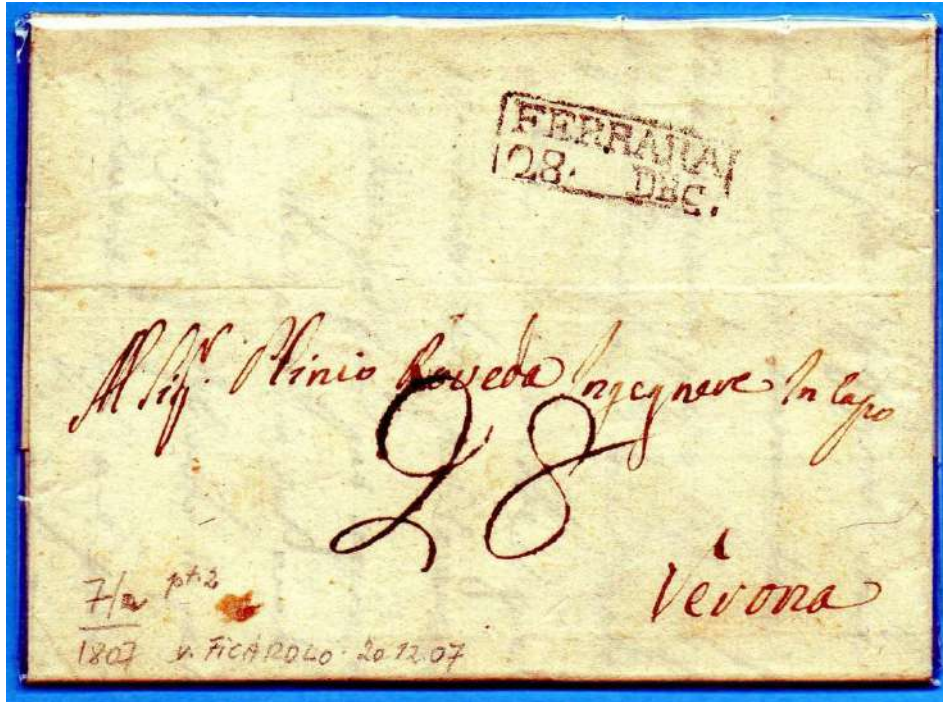 FERRARA
28. DEC.
Al Sig.r Plinio Roveda Ingegnere In Capo
28
Verona
7/a pt. 2
1807 v. FICAROLO 20.12.07